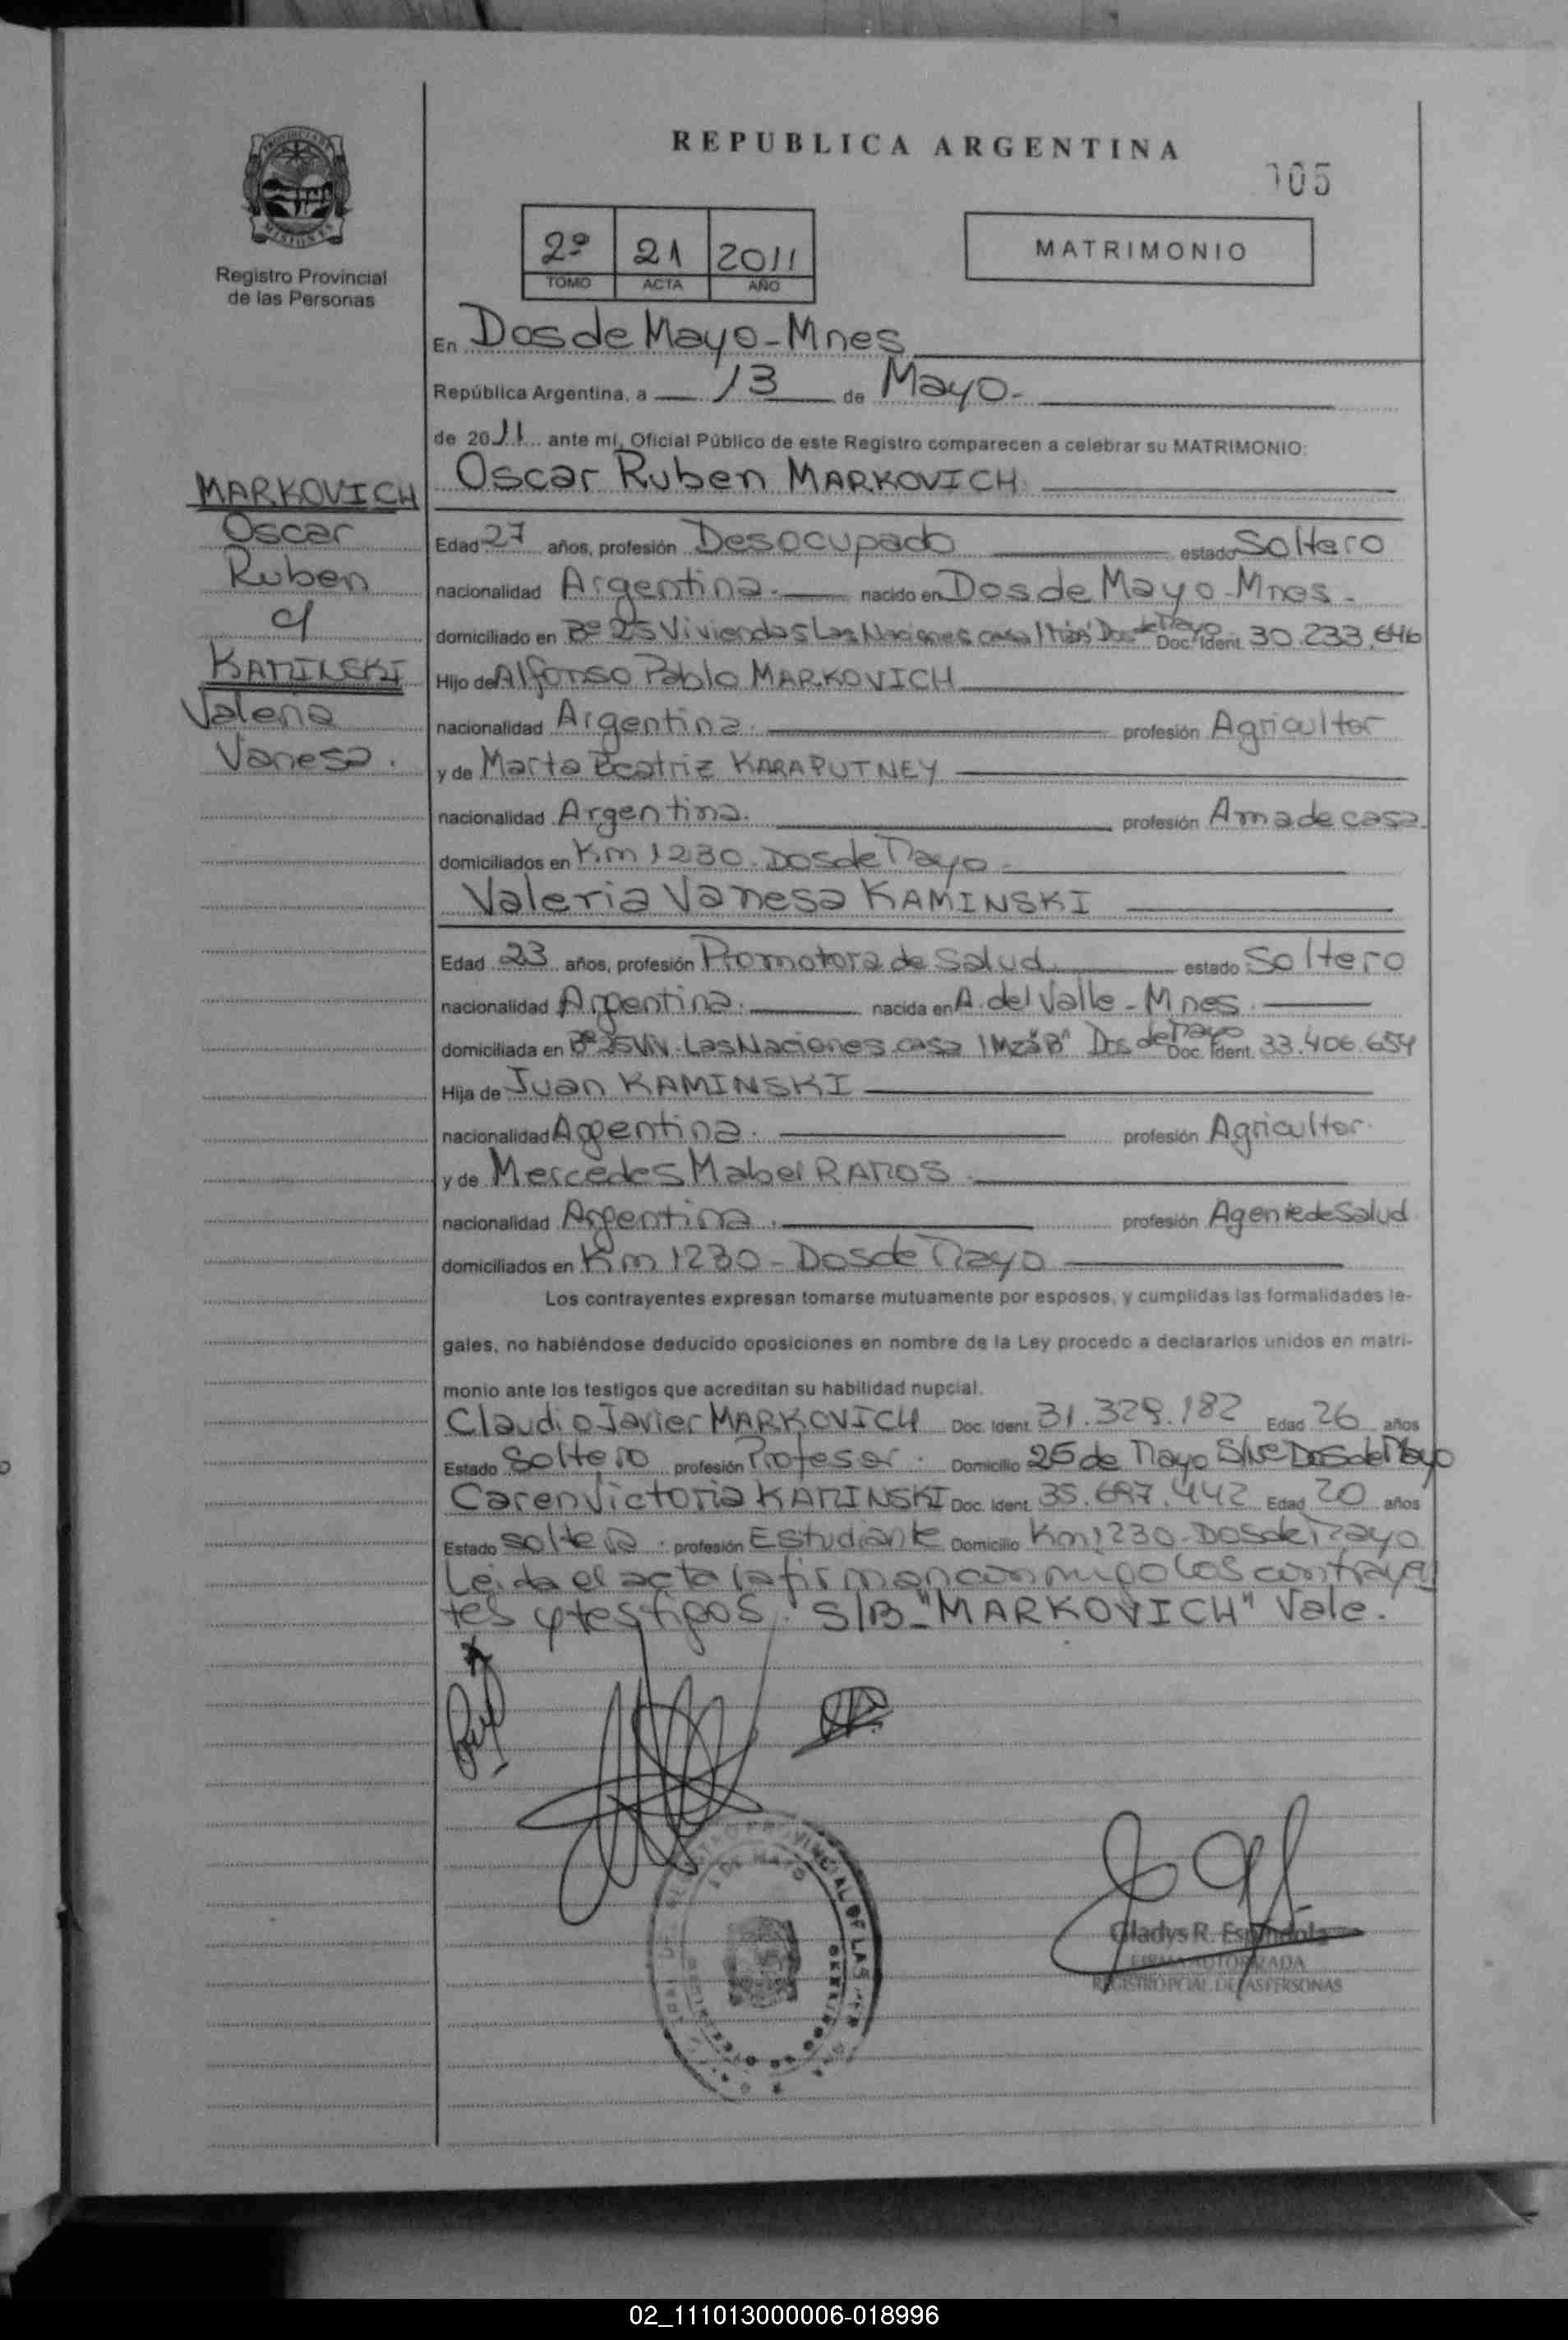 REPUBLICA ARGENTINA
105
PROVINCIA DE
MISIONES
Registro Provincial
de las Personas
2º 21 2011
TOMO ACTA AÑO
MATRIMONIO
En Dos de Mayo - Mnes
República Argentina, a 13 de Mayo -
de 2011 ante mí, Oficial Público de este Registro comparecen a celebrar su MATRIMONIO:
Oscar Ruben MARKOVICH
MARKOVICH
Oscar
Ruben
c/
KAMINSKI
Valeria
Vanesa.
Edad 27 años, profesión Desocupado estado Soltero
nacionalidad Argentina. nacido en Dos de Mayo - Mnes -
domiciliado en Bº 25 Viviendas Las Naciones casa 1 Dos de Mayo Doc. Ident. 30.233.646
Hijo de Alfonso Pablo MARKOVICH
nacionalidad Argentina. profesión Agricultor
y de Marta Beatriz KARAPUTNEY
nacionalidad Argentina. profesión Ama de casa.
domiciliados en Km 1230. Dos de Mayo
Valeria Vanesa KAMINSKI
Edad 23 años, profesión Promotora de Salud estado Soltero
nacionalidad Argentina. nacida en A. del Valle - Mnes.
domiciliada en Bº 25 Viv. Las Naciones casa 1 Mza "B" Dos de Mayo Doc. Ident. 33.406.654
Hija de Juan KAMINSKI
nacionalidad Argentina. profesión Agricultor.
y de Mercedes Mabel RAMOS.
nacionalidad Argentina. profesión Agente de Salud
domiciliados en Km 1230 - Dos de Mayo
Los contrayentes expresan tomarse mutuamente por esposos, y cumplidas las formalidades le-
gales, no habiéndose deducido oposiciones en nombre de la Ley procedo a declararlos unidos en matri-
monio ante los testigos que acreditan su habilidad nupcial.
Claudio Javier MARKOVICH Doc. Ident. 31.329.182 Edad 26 años
Estado Soltero profesión Profesor. Domicilio 25 de Mayo S/Nº Dos de Mayo
Caren Victoria KAMINSKI Doc. Ident. 35.697.442 Edad 20 años
Estado soltera. profesión Estudiante Domicilio Km 1230 - Dos de Mayo
Leida el acta la firman conmigo los contrayen
tes y testigos. S/B "MARKOVICH" Vale.
REGISTRO PROVINCIAL DE LAS
2 DE MAYO
Gladys R. Espindola
FIRMA AUTORIZADA
REGISTRO PCIAL. DE LAS PERSONAS
02_111013000006-018996